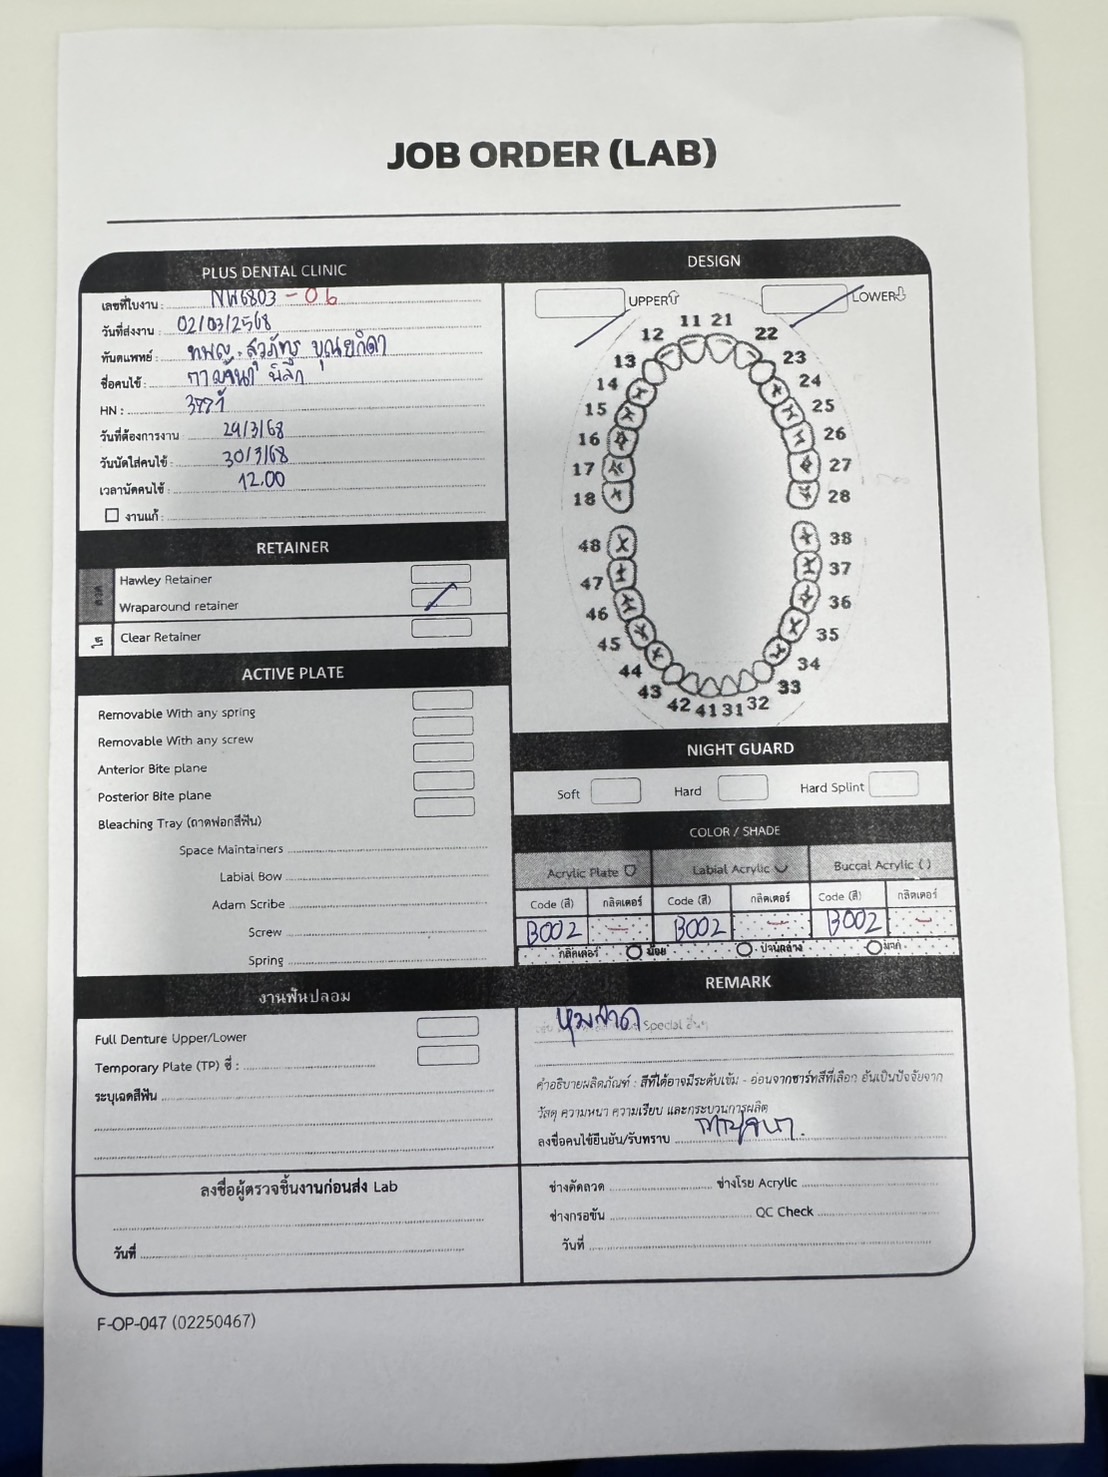 JOB ORDER (LAB)
PLUS DENTAL CLINIC
เลขที่ใบงาน : NW6803-06
วันที่ส่งงาน : 02/03/2568
ทันตแพทย์ : ทพญ. สุวภัทร บุณยกิดา
ชื่อคนไข้ : กาญจนา
HN :
วันที่ต้องการงาน 29/3/68
วันนัดใส่คนไข้ : 30/3/68
เวลานัดคนไข้ : 12.00
งานแก้ :
RETAINER
ลวด
Hawley Retainer
Wraparound retainer
ใส
Clear Retainer
ACTIVE PLATE
Removable With any spring
Removable With any screw
Anterior Bite plane
Posterior Bite plane
Bleaching Tray (ถาดฟอกสีฟัน)
Space Maintainers
Labial Bow
Adam Scribe
Screw
Spring
งานฟันปลอม
Full Denture Upper/Lower
Temporary Plate (TP) ซี่ :
ระบุเฉดสีฟัน
ลงชื่อผู้ตรวจชิ้นงานก่อนส่ง Lab
วันที่
DESIGN
UPPER LOWER
11 21
12 22
13 23
14 24
15 25
16 26
17 27
18 28
48 38
47 37
46 36
45 35
44 34
43 33
42 41 31 32
NIGHT GUARD
Soft Hard Hard Splint
COLOR / SHADE
Acrylic Plate Labial Acrylic Buccal Acrylic ( )
Code (สี) กลิตเตอร์ Code (สี) กลิตเตอร์ Code (สี) กลิตเตอร์
B002 — B002 — B002 —
กลิตเตอร์ น้อย ปานกลาง มาก
REMARK
หุ้มลวด Special อื่นๆ
คำอธิบายผลิตภัณฑ์ : สีที่ได้อาจมีระดับเข้ม - อ่อนจากชาร์ทสีที่เลือก อันเป็นปัจจัยจาก
วัสดุ ความหนา ความเรียบ และกระบวนการผลิต
ลงชื่อคนไข้ยืนยัน/รับทราบ กาญจนา
ช่างดัดลวด ช่างโรย Acrylic
ช่างกรอขัน QC Check
วันที่
F-OP-047 (02250467)